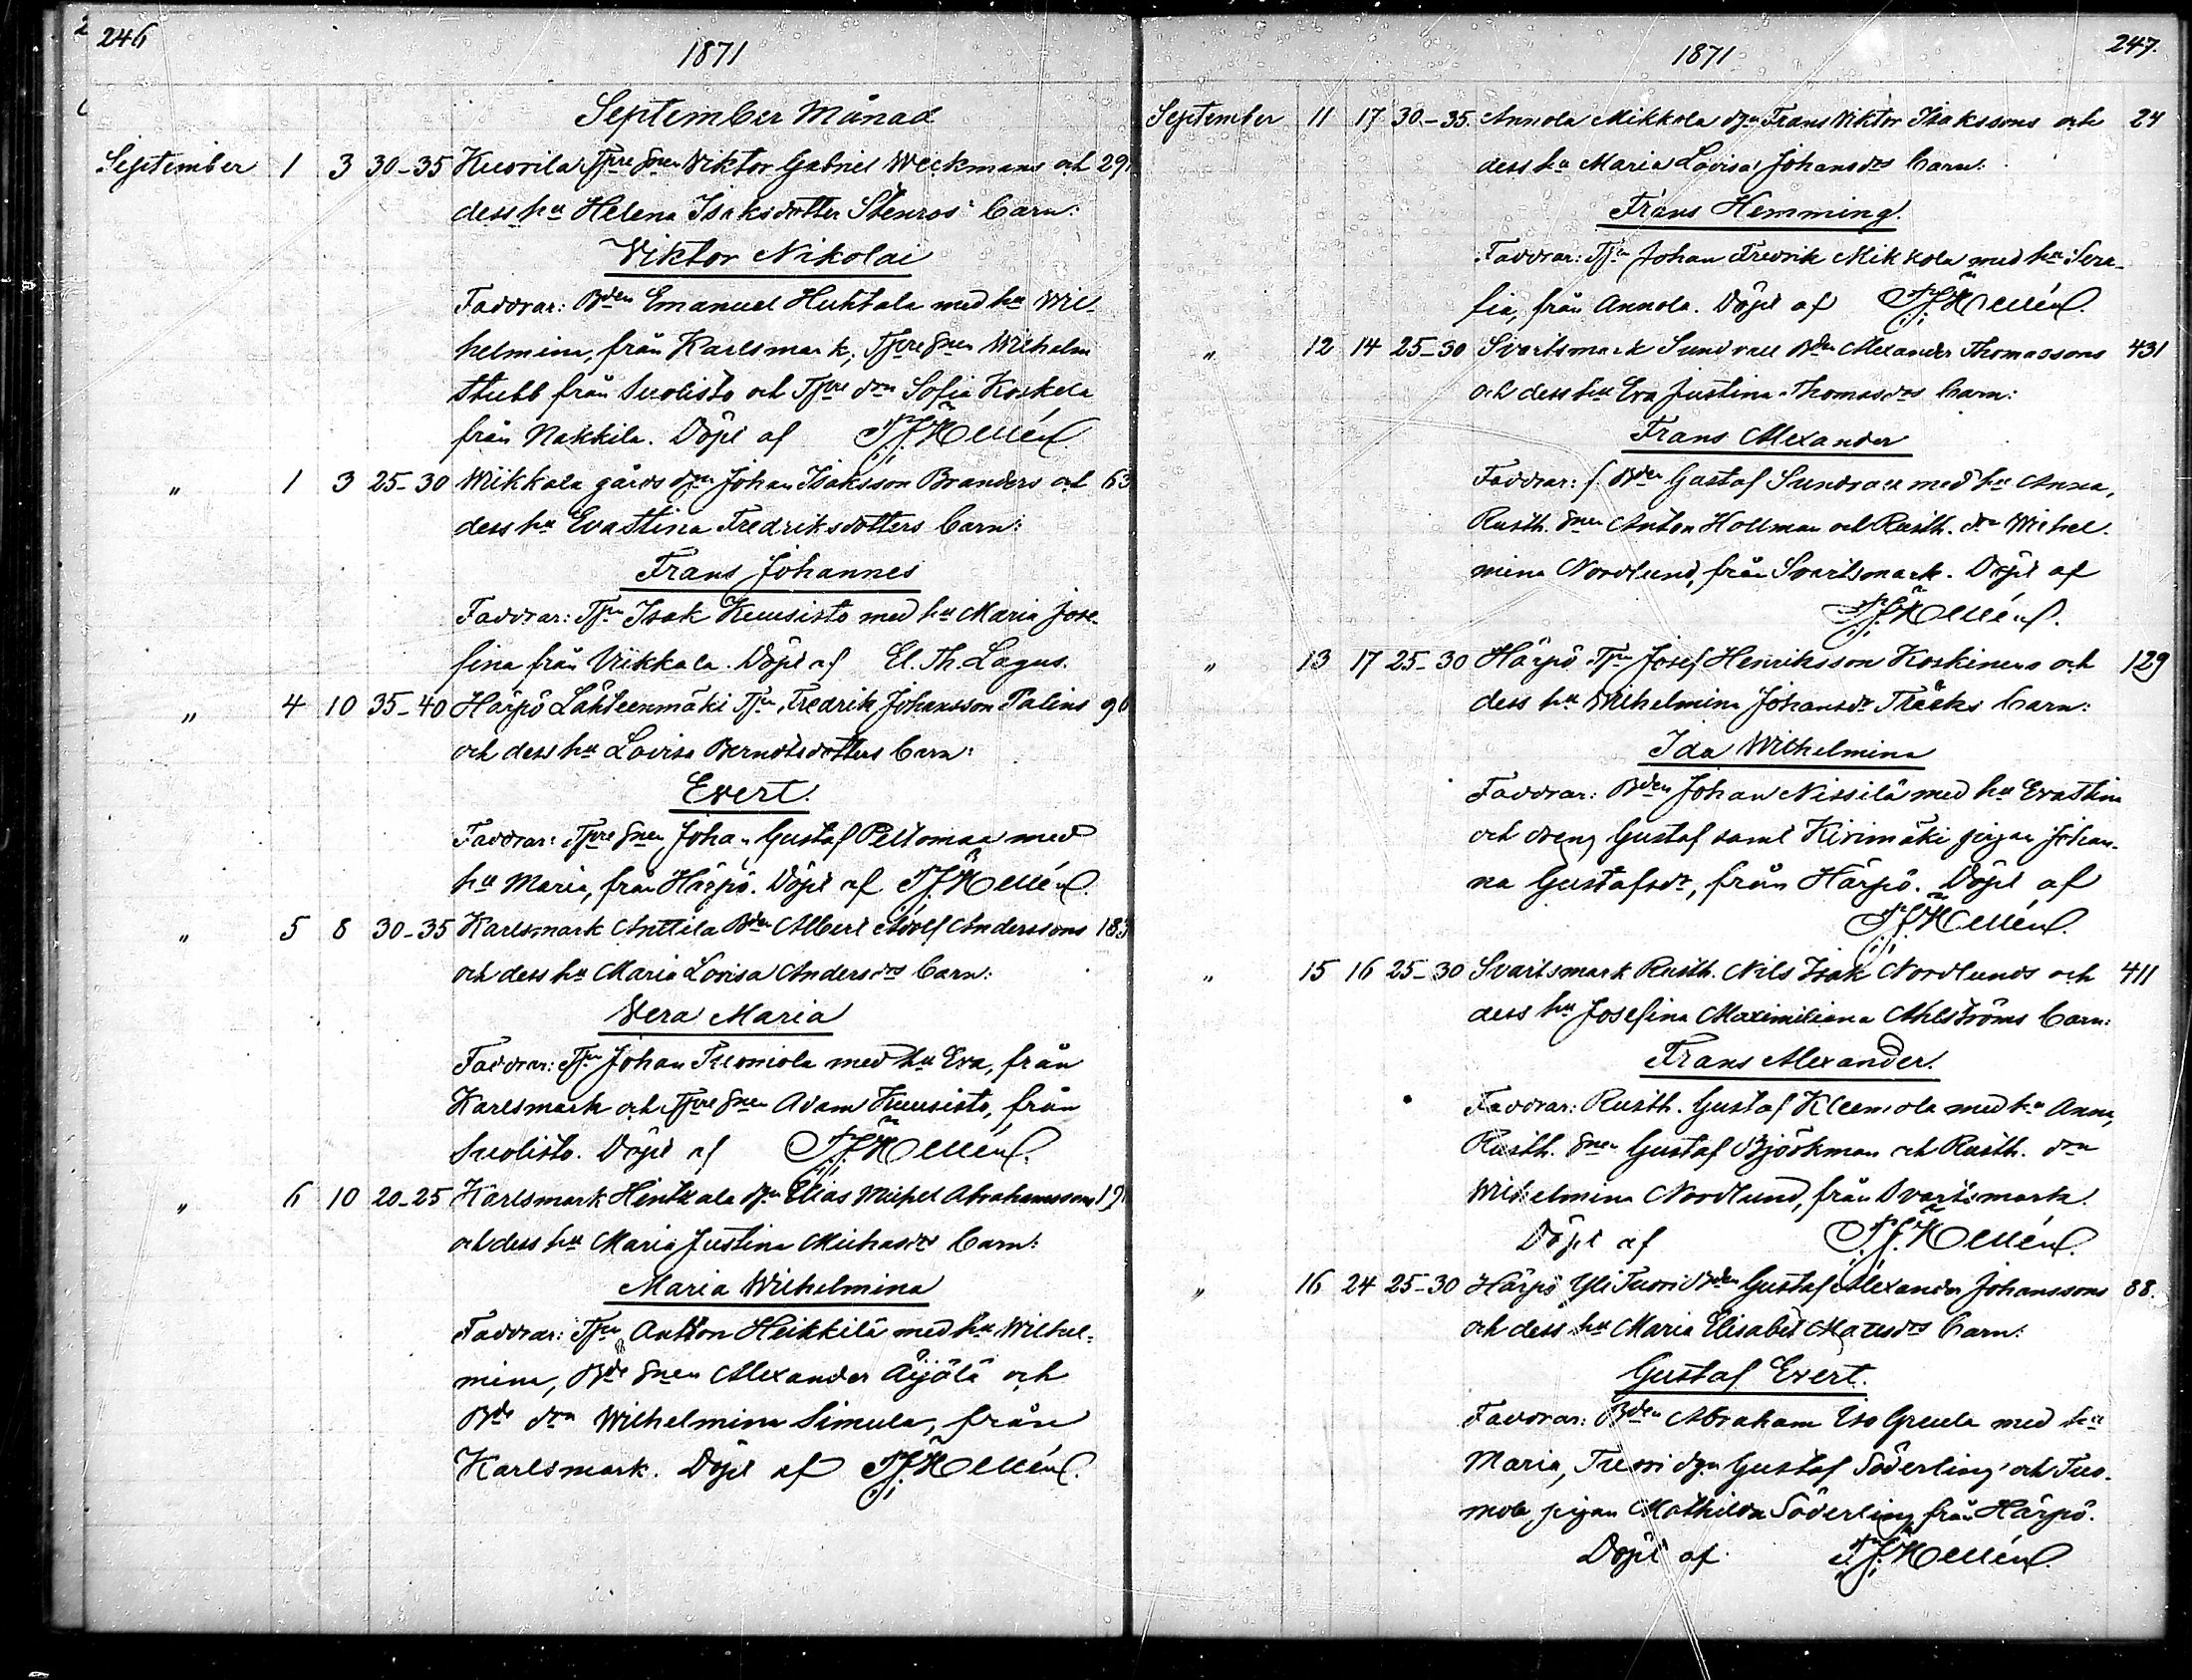 246
1871
September Månad
September 1 3 30-35 Kuovila Tpre Snen Viktor Gabriel Weckmans och 29
dess hu Helena Isaksdotter Stenros' barn:
Viktor Nikolai
Faddrar: Bden Emanuel Huhtala med hu Wil-
helmina, från Karlsmark, Tpre Snen Wilhelm
Stubb från Suolisto och Tpre don Sofia Koskela
från Nakkila. Döpt af
" 1 3 25-30 Wiikkala gårds Johan Isaksson Branders och 63
dess hu Evastina Fredriksdotters barn:
Frans Johannes
Faddrar: Tpn Isak Kuusisto med hu Maria Jose-
fina från Viikkala. Döpt af El. Th. Lagus.
" 4 10 35-40 Härpö Lähteenmäki Tpn Fredrik Johansson Palins 9
och dess hu Lovisa Berndtsdotters barn:
Evert.
Faddrar: Tpre Snen Johan Gustaf Peltomaa med
hu Maria, från Härpö. Döpt af
" 5 8 30-35 Karlsmark Anttila Bden Albert Adolf Anderssons 183
och dess hu Maria Lovisa Andersdrs barn:
Vera Maria
Faddrar: Tpn Johan Tuomola med hu Eva, från
Karlsmark och Tpre Snen Adam Kuusisto, från
Suolisto. Döpt af
" 6 10 20-25 Karlsmark Hintzala Elias Michel Abrahamssons 19
och dess hu Maria Justina Michasdrs barn:
Maria Wilhelmina
Faddrar: Tpn Anton Heikkilä med hu Wilhel-
mina, Bde Snen Alexander Äijälä och
Bde don Wilhelmina Simula, från
Karlsmark. Döpt af
247.
1871
September 11 17 30-35. Annola Mikkola Frans Viktor Isakssons och 24
dess hu Maria Lovisa Johansdrs barn:
Frans Hemming.
Faddrar: Tpn Johan Fredrik Mikkola med hu Sera-
fia, från Annola. Döpt af
" 12 14 25-30 Svartsmark Sundvall Bden Alexander Thomassons 431
och dess hu Eva Justina Thomasdrs barn:
Frans Alexander
Faddrar: f. Bden Gustaf Sundvall med hu Anna,
Rusth. Snen Anton Hollman och Rusth. don Wilhel-
mina Nordlund, från Svartsmark. Döpt af
" 13 17 25-30 Härpö Tpn Josef Henriksson Koskinens och 129
dess hu Wilhelmina Johansdr Flacks barn:
Ida Wilhelmina
Faddrar: Bden Johan Nissilä med hu Evastina
och dreng Gustaf samt Kivimäki pigan Johan-
na Gustafsdr, från Härpö. Döpt af
" 15 16 25-30 Svartsmark Rusth. Nils Isak Nordlunds och 411
dess hu Josefina Maximiliana Ahlströms barn:
Frans Alexander.
Faddrar: Rusth. Gustaf Kleemola med hu Anna,
Rusth. Snen Gustaf Björkman och Rusth. don
Wilhelmina Nordlund, från Svartsmark.
Döpt af
" 16 24 25-30 Härpö Yli Tuori Bden Gustaf Alexander Johanssons 88.
och dess hu Maria Elisabet Matsdrs barn:
Gustaf Evert.
Faddrar: Bden Abraham Iso Greula med hu
Maria, Tuori Gustaf Söderling och Tuo-
mola pigan Mathilda Söderling från Härpö.
Döpt af